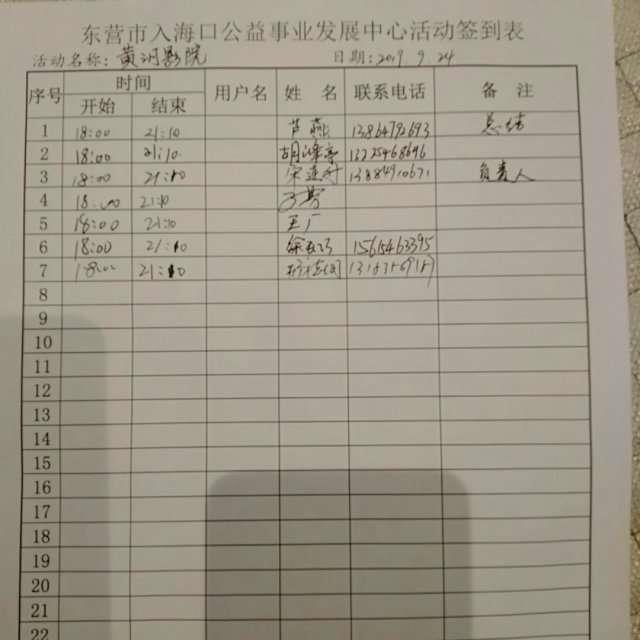 东营市入海口公益事业发展中心活动签到表
活动名称：黄河影院 日期：2019.9.24
序号 时间 用户名 姓 名 联系电话 备 注
开始 结束
1 18:00 21:10 芦燕 总结
2 18:00 21:10
3 18:00 21:10 负责人
4 18:00 21:10
5 18:00 21:10 王广
6 18:00 21:10 15615463395
7 18:00 21:10
8
9
10
11
12
13
14
15
16
17
18
19
20
21
22